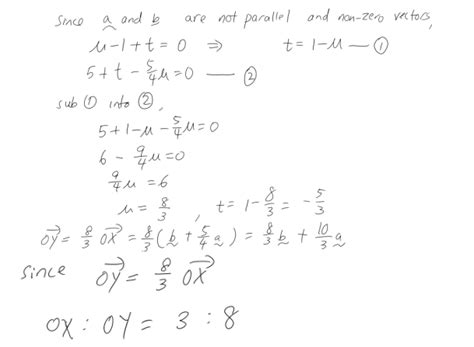 since a and b are not parallel and non-zero vectors,
μ-1+t=0 ⇒ t=1-μ —①
5+t-5/4μ=0 —②
sub ① into ②,
5+1-μ-5/4μ=0
6-9/4μ=0
9/4μ=6
μ=8/3, t=1-8/3=-5/3
OY=8/3 OX=8/3(b+5/4a)=8/3b+10/3a
since OY=8/3 OX
OX:OY=3:8